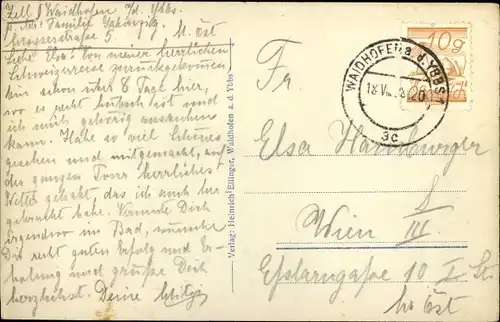 Zell / Waidhofen a/d. Ybbs.
p. Adr: Familie
straße 5. N. Öst
Liebe Elsa! Von meiner herrlichen
Schweizerreise zurückgekommen,
bin schon über 8 Tage hier,
wo es recht hübsch ist und
ich mich gehörig ausruhen
kann. Habe so viel Schönes
gesehen und mitgemacht, auf
der ganzen Tour herrliches
Wetter gehabt, das ich auch hier
gebraucht habe. Dich
irgendwo im Bad, wünsche
Dir recht guten Erfolg und Er-
holung und grüße Dich
herzlichst. Deine
Verlag: Heinrich Ellinger, Waidhofen a. d. Ybbs
10g
Österreich
WAIDHOFEN a. d. YBBS
3c
Fr.
Elsa Hamburger
Wien III.
10 I. St.